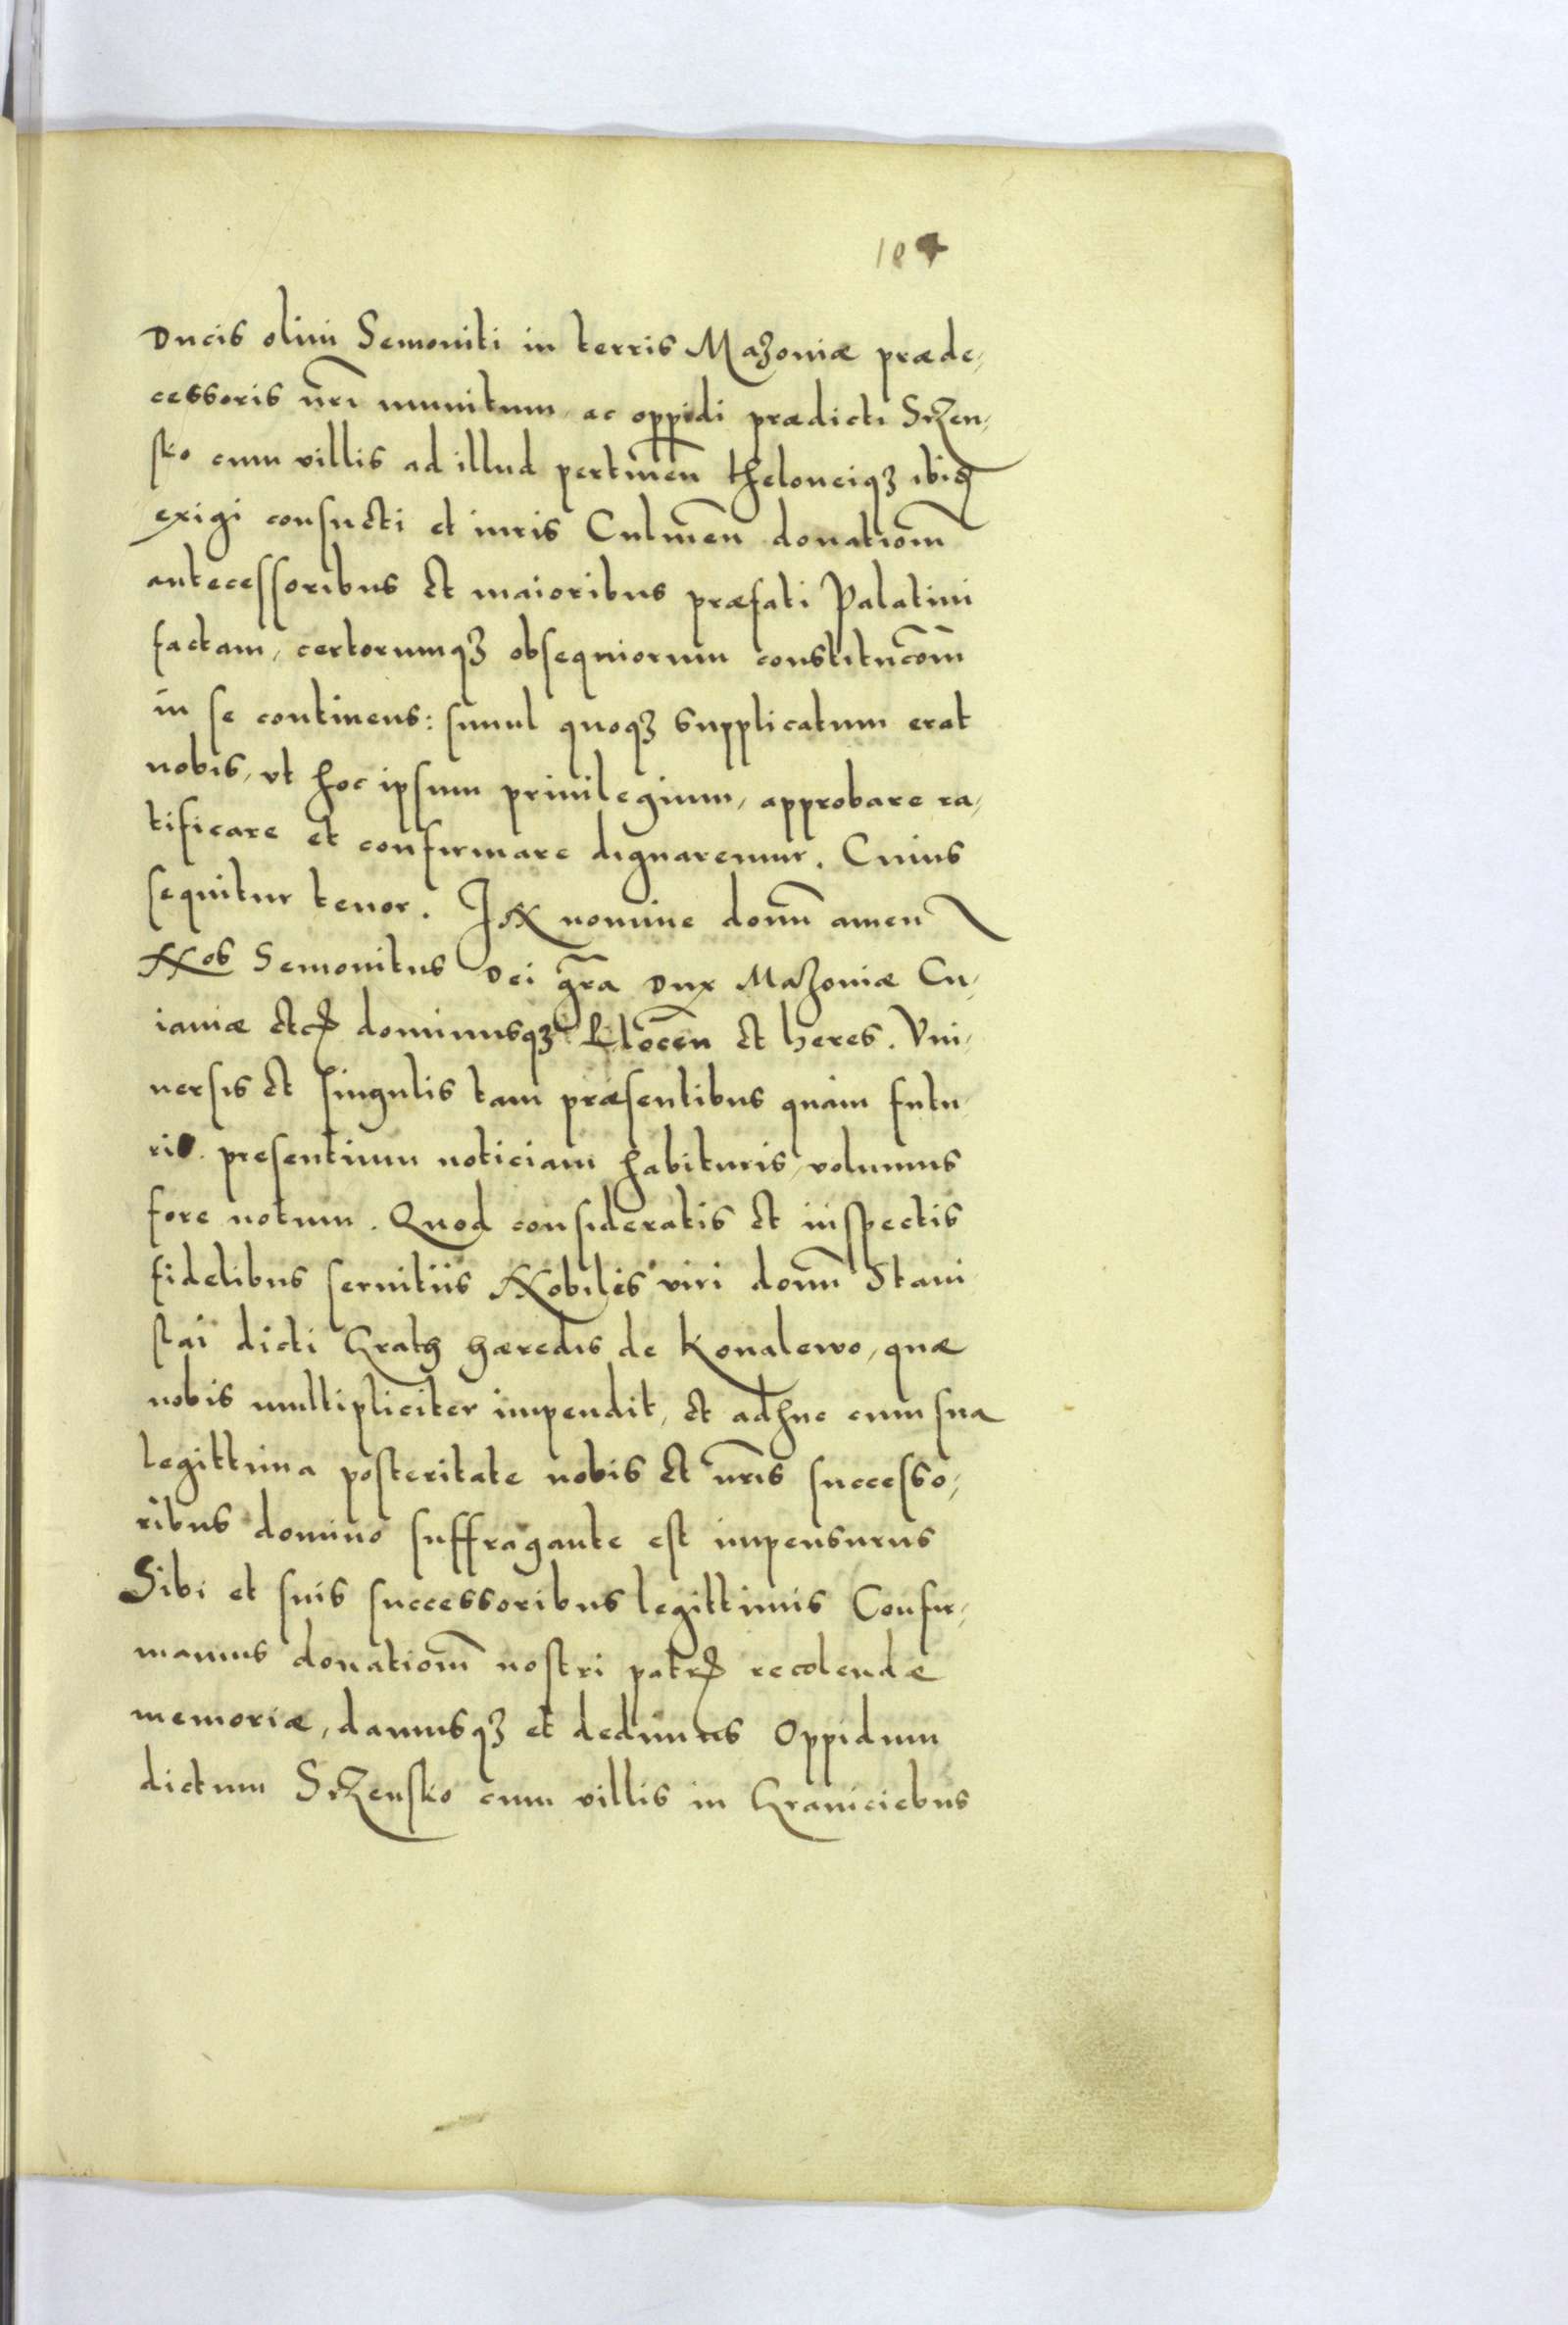 104
Ducis olim Semoniti in terris Mazoniæ præde,
cessoris nr̄i munitum, ac oppidi prædicti Srzen,
sko cum villis ad illud pertineñ theloneiqꝫ ibiđ
exigi consueti et iuris Culmeñ donatiom̄
antecessoribus et maioribus præfati Palatini
factam, certorumqꝫ obsequiorum constitucōm̄
in se continens: simul quoqꝫ supplicatum erat
nobis, vt hoc ipsum priuilegium, approbare ra,
tificare et confirmare dignaremur. Cuius
sequitur tenor. IN nomine domī amen
Nos Semouitus Dei gr̄a Dux Mazoniæ Cu,
iauiæ etcꝭ dominusqꝫ Plocēn et heres. Vni,
uersis et singulis tam præsentibus quàm futu,
ris. presentium noticiam habituris, volumus
fore notum. Quod consideratis et inspectis
fidelibus seruitiis Nobilis viri domī Stani
slai dicti Grath hæredis de Koualewo, quæ
nobis multipliciter impendit, et adhuc cum sua
legittima posteritate nobis et nr̄is successo,
ribus domino suffragante est impensurus
Sibi et suis successoribus legittimis Confir,
mamus donatiom̄ nostri patrꝭ recolendæ
memoriæ, damusqꝫ et dedimus Oppidum
dictum Srzensko cum villis in Graniciebus